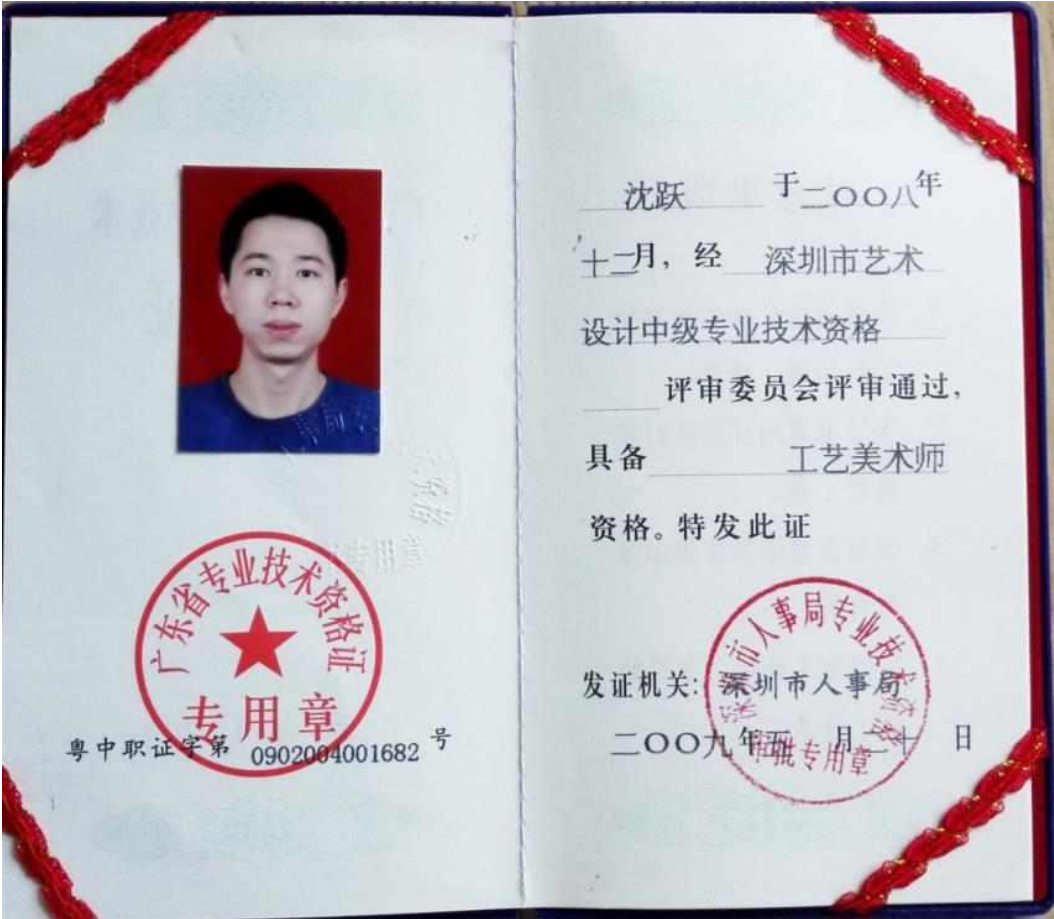 广东省专业技术资格证
专用章
粤中职证字第 0902004001682 号
沈跃 于二〇〇八年
十二月，经 深圳市艺术
设计中级专业技术资格
评审委员会评审通过，
具备 工艺美术师
资格。特发此证
发证机关：深圳市人事局
二〇〇九年五月二十日
深圳市人事局专业技术资格
审批专用章